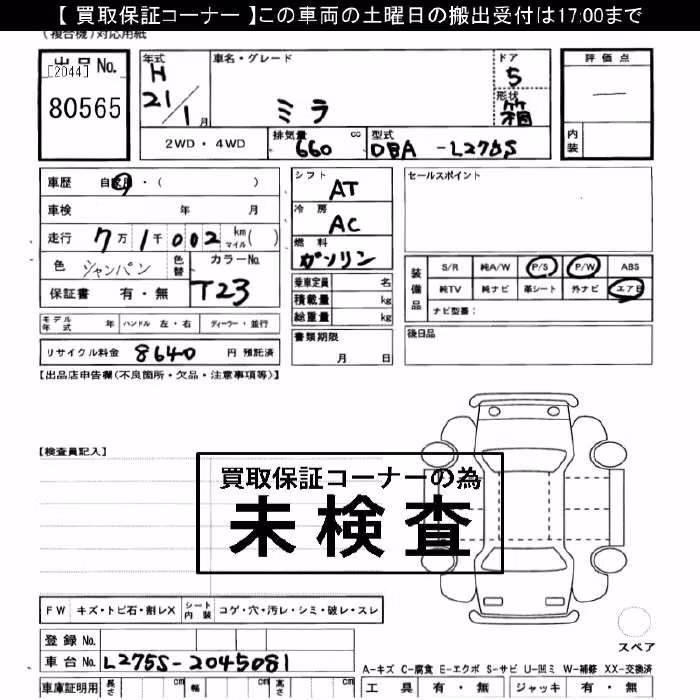 【 買取保証コーナー 】この車両の土曜日の搬出受付は17:00まで
(複合機)対応用紙
出品 No.
[2044]
80565
年式 H 21/1 月
車名・グレード ミラ
ドア 5
形状 箱
評価点 —
内装
2WD・4WD
排気量 660 cc
型式 DBA -L275S
車歴 自家用・( )
車検 年 月
走行 7万1千002 km マイル( )
色 シャンパン 色替
カラーNo. T23
保証書 有・無
シフト AT
冷房 AC
燃料 ガソリン
乗車定員 名
積載量 kg
総重量 kg
セールスポイント
装備品
S/R 純A/W P/S P/W ABS
純TV 純ナビ 革シート 外ナビ エアB
ナビ型番:
モデル年式 年 ハンドル 左・右 ディーラー・並行
リサイクル料金 8640 円 預託済
書類期限 月 日
後日品
【出品店申告欄(不良箇所・欠品・注意事項等)】
【検査員記入】
買取保証コーナーの為
未検査
FW キズ・トビ石・割レX シート内装 コゲ・穴・汚レ・シミ・破レ・スレ
スペア
登録 No.
車台 No. L275S-2045081
A-キズ C-腐食 E-エクボ S-サビ U-凹ミ W-補修 XX-交換済
車庫証明用 長さ cm 幅 cm 高さ cm
工具 有・無 ジャッキ 有・無